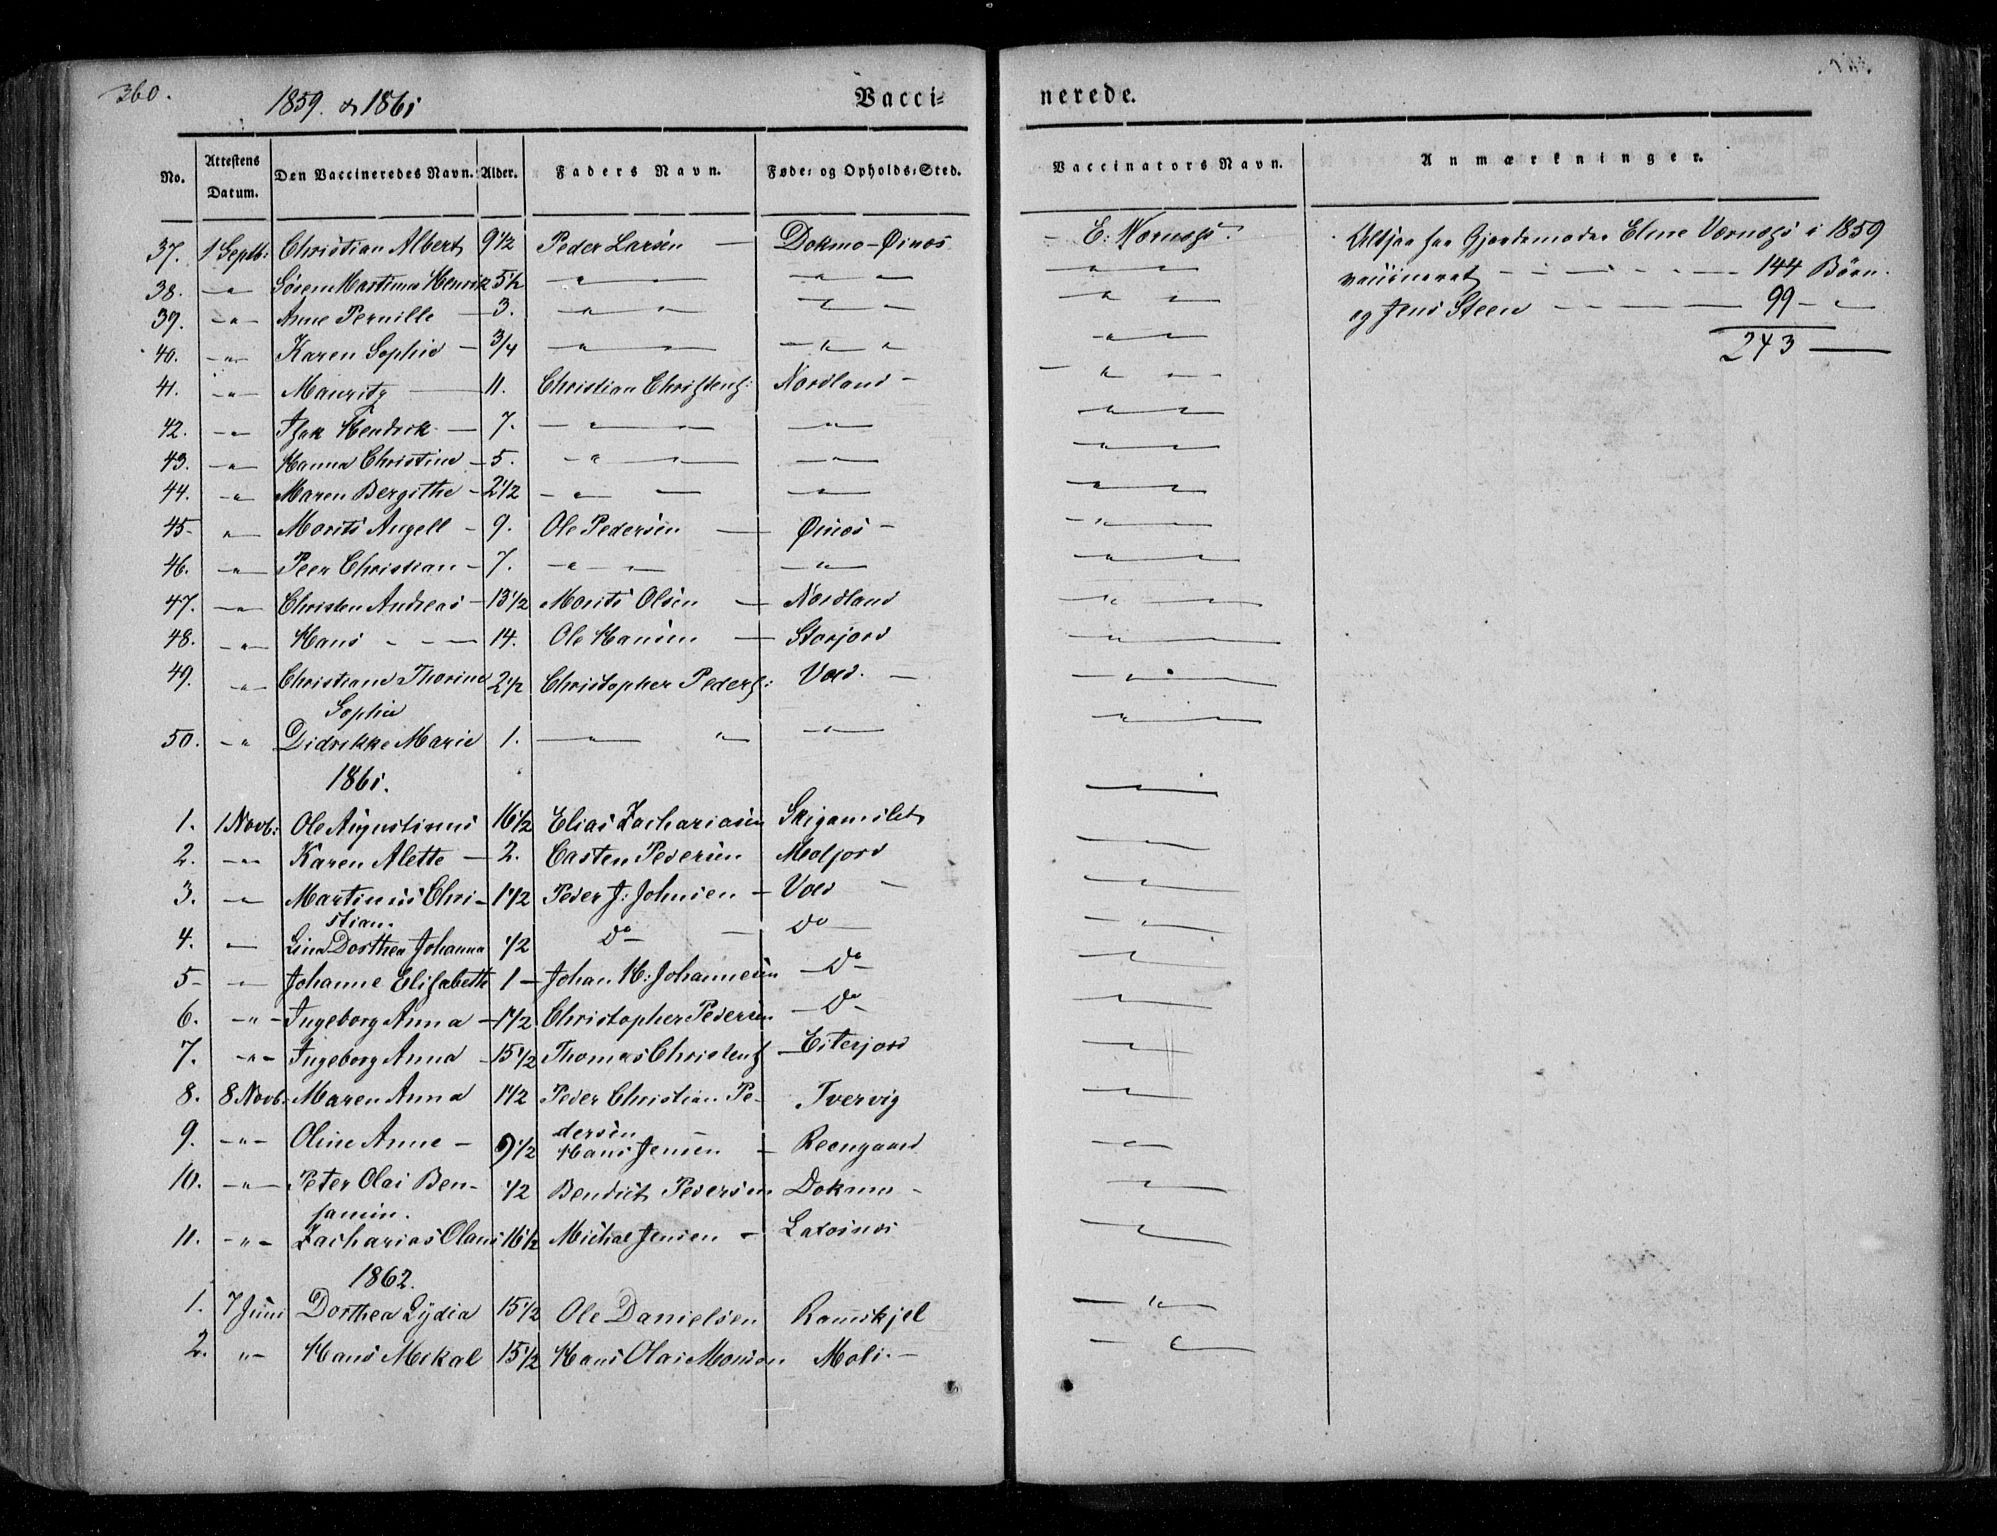 360.
1859. & 1861
Vacci-
nerede.
No. Attestens Datum. Den Vaccineredes Navn. Alder. Faders Navn. Føde- og Opholds-Sted. Vaccinators Navn. Anmærkninger.
37. 1 Septb: Christian Albert 9 1/2 Peder Larsen — Dokmo-Øinæs - E: Altsaa har Gjordemoder Elme i 1859
38. —"— Søren Martinus Henrik 5 1/2 —"—"— " " —"—"— vaccineret — — — 144 Børn.
39. —"— Anne Pernille — 3. —"—"— " " —"—"— og Jens Steen — — — 99 — "
40. —"— Karen Sophie — 3/4 —"—"— —"—"— —"—"— 243 —
41. —"— Mauritz — 11. Christian Christens: Nordland — —"—
42. —"— Isak Hendrik — 7. —"—"— —"— —"—
43. —"— Hanna Christine — 5. —"—"— —"— —"—
44. —"— Maren Bergithe — 2 1/2 —"—"— —"— —"—
45. —"— Morits Angell — 9. Ole Pedersen — Øinæs — —"—
46. —"— Peer Christian — 7. —"—"— —"— —"—
47. —"— Christen Andreas — 13 1/2 Morits Olsen — Nordland —"—
48. —"— Hans — — 14. Ole Hansen — Storjord —"—
49. —"— Christiane Thorine 2 1/2 Christopher Peders: Vold. — —"—
Sophie
50. —"— Didrikke Marie 1. —"—"— —"— —"—
1861.
1. 1 Novb: Ole Augustinus 16 1/2 Elias Zachariasen —"—
2. —"— Karen Alette — 2. Casten Pedersen Molfjord —"—
3. —"— Martinus Chri- 1 1/2 Peder J: Johnsen — Vold — —"—
stian.
4. —"— Lina Dorthea Johanna 1/2 Do — Do — —"—
5 —"— Johanne Elisabeth 1 — Johan H: Johannesen — Do — —"—
6. —"— Ingeborg Anna — 1 1/2 Christopher Pedersen — Do — —"—
7. —"— Ingeborg Anna — 15 1/2 Thomas Christens — Eiterjord —"—
8. 8 Novb: Maren Anna 1 1/2 Peder Christian Pe- Tvervig —"—
dersen
9. —"— Oline Anne — 9 1/2 Hans Jensen — Reengaard —"—
10. —"— Peter Olai Ben- 1/2 Bendict Pedersen Dokmo — —"—
jamin.
11. —"— Zacharias Olaus 16 1/2 Michal Jensen — —"—
1862.
1. 7 Juni Dorthea Lydia 15 1/2 Ole Danielsen Ramskjel —"—
2. —"— Hans Mekal 15 1/2 Hans Olai Monsen Moli. — —"—